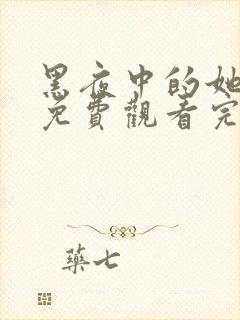 黑夜中的她
免費觀看完
藥七